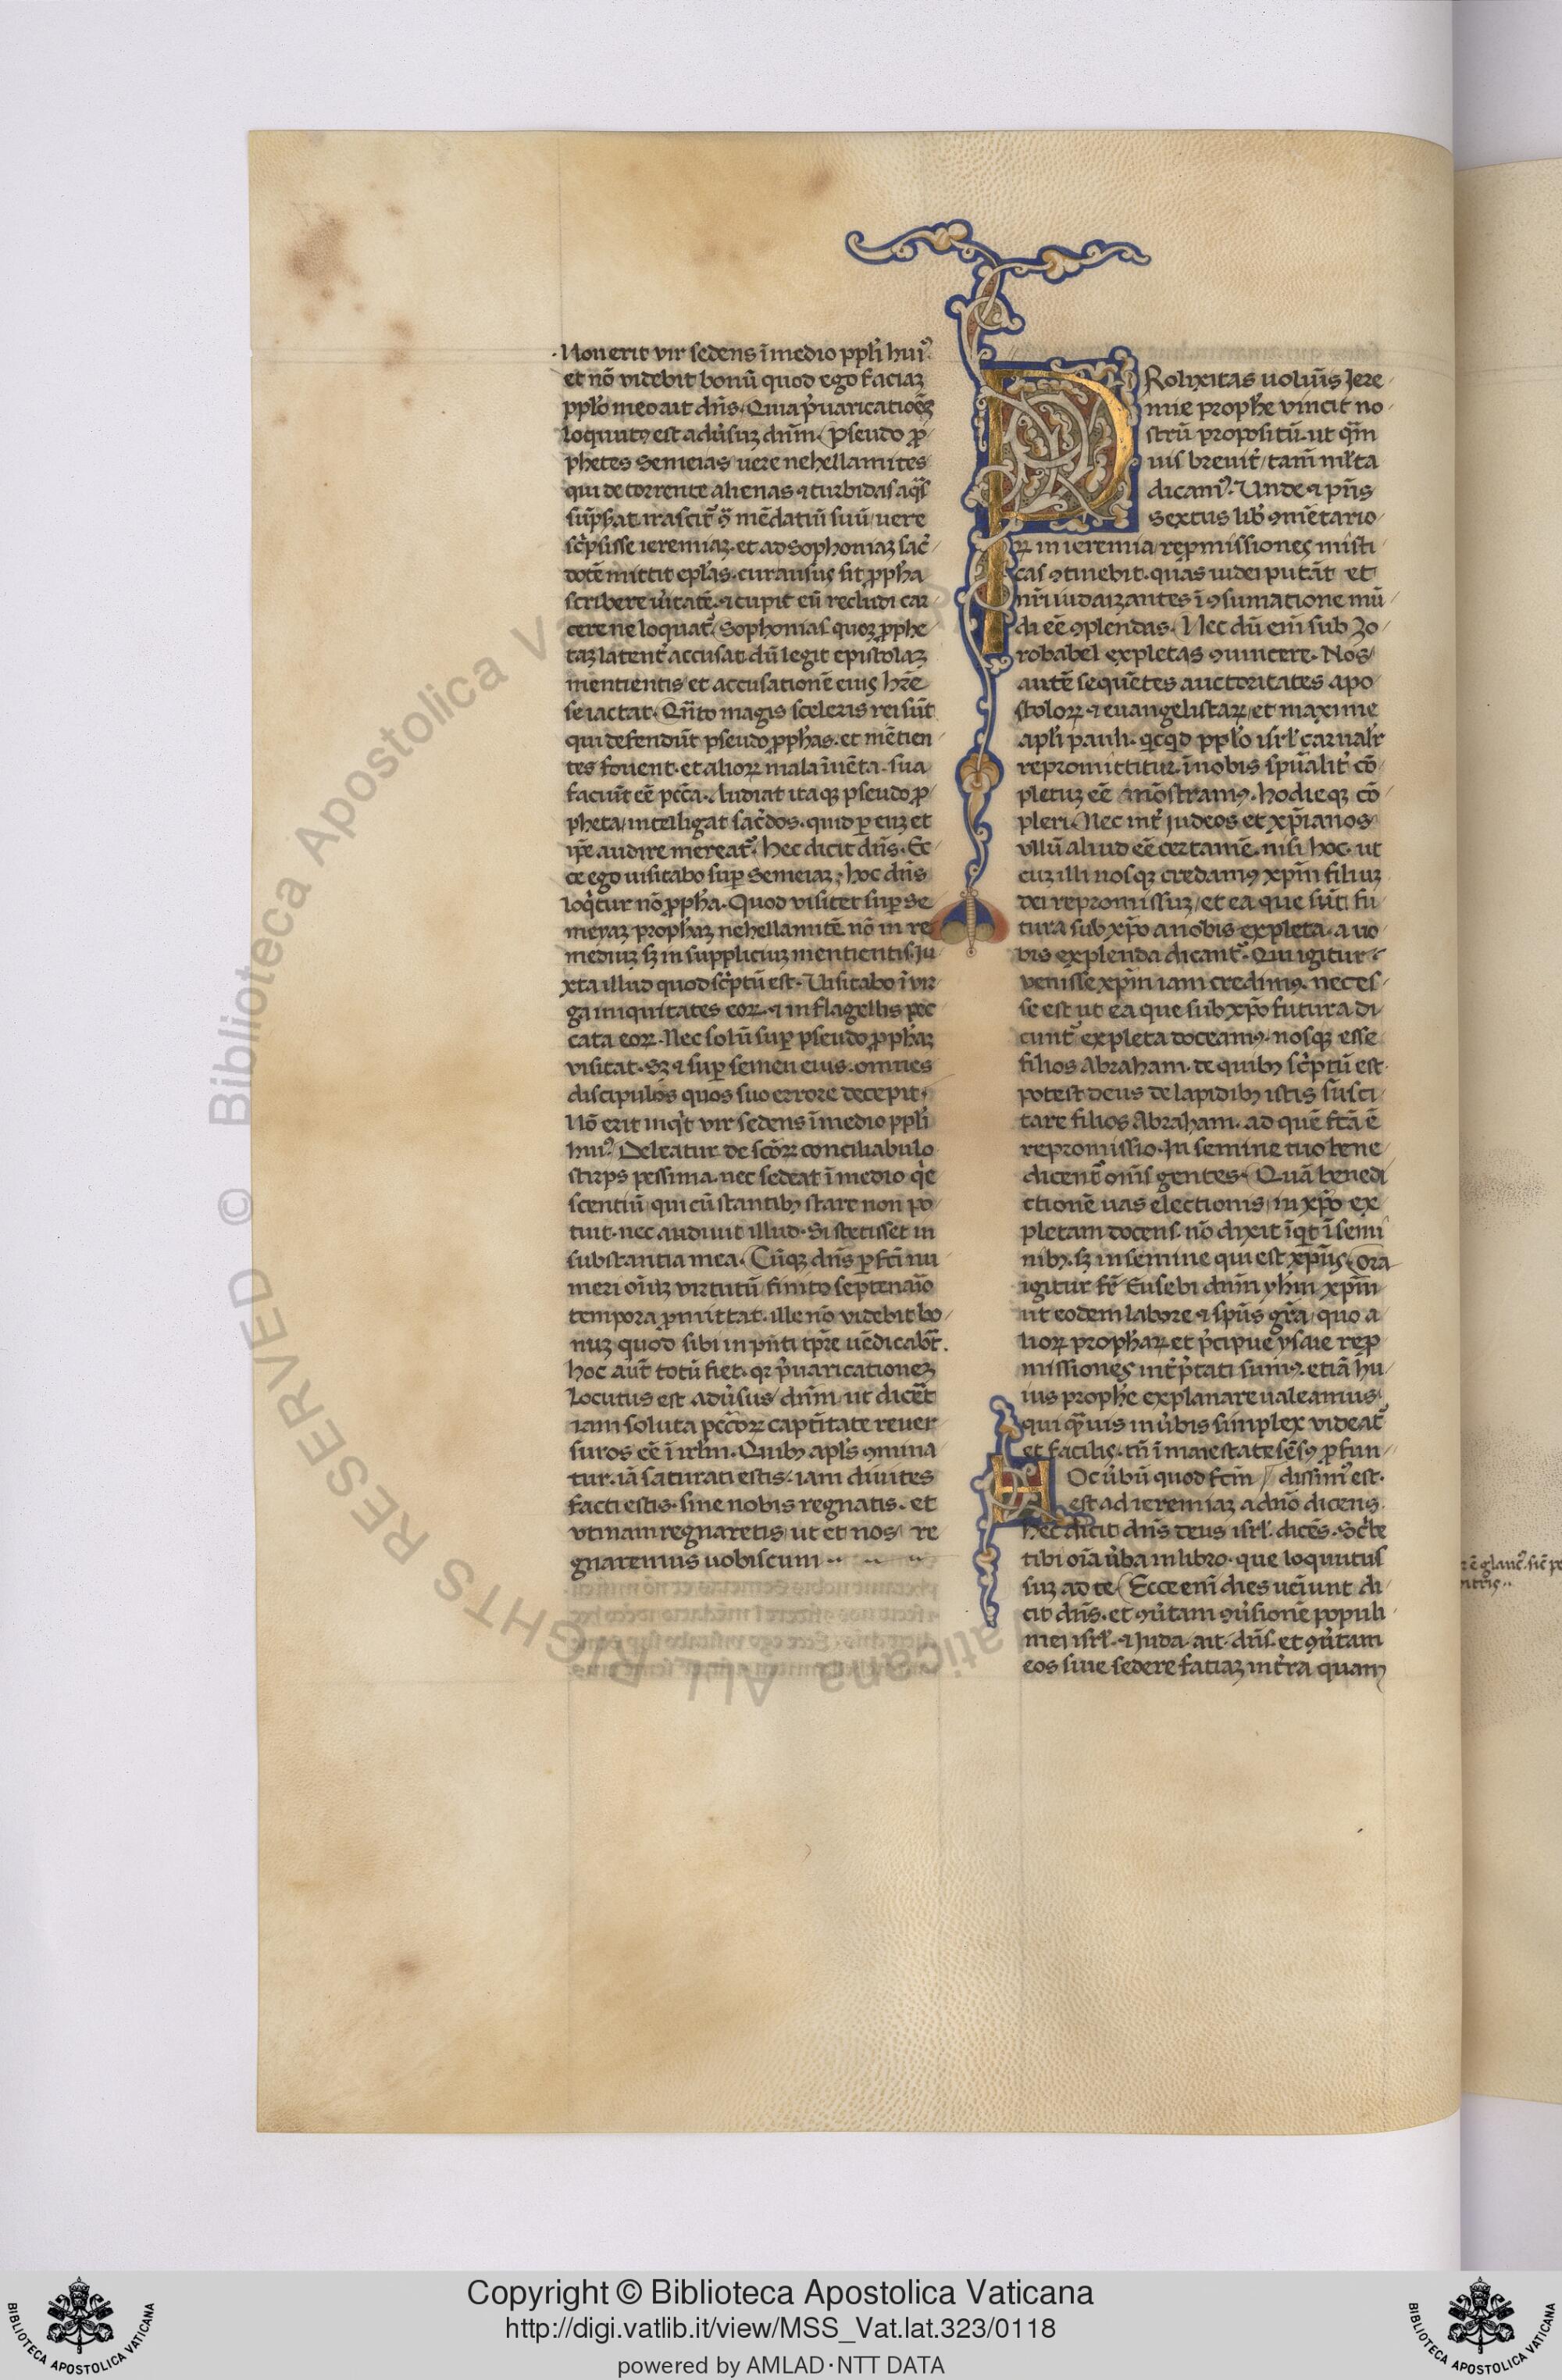 Non erit vir sedens ī medio ppłi hui᾽
et nō videbit bonū quod ego faciaꝫ
ppło meo ait dn̄s. Quia p̄uaricatiōēs
loquut᾽ est adūsuꝫ dnm̄. Pseudo ꝓ
phetes Semeias uere nehellamites
qui de torrente alienas ⁊ turbidas aq̄s
irascit᾽ ꝙ mēdatiū suū uere
sc̄psisse ieremiaꝫ. et ad Sophoniaꝫ sac̄
dotē mittit epłas. cur ausus sit ꝓpħa
scribere ūitatē. ⁊ cupit eū recludi car
cere ne loquat᾽. Sophonias quoꝫ ꝓphe
taꝫ latent᾽ accusat. dū legit epistolaꝫ
mentientis et accusationē eius hr̄e
se iactat. Qn̄to magis sceleris rei sūt
qui defendūt pseudo ꝓpħas. et mētien
tes fouent. et alioꝝ mala īuēta. sua
faciūt eē pcc̄a. Audiat itaqꝫ pseudo ꝓ
pheta intelligat sac̄dos. quid ꝑ euꝫ et
ip̄e audire mereat᾽. hec dicit dn̄s. Ec
ce ego uisitabo sup̄ Semeiaꝫ. hoc dn̄s
loq̄tur nō ꝓpħa. Quod visitet sup̄ Se
meyaꝫ prophaꝫ nehellamitē nō in re
mediuꝫ sꝫ in suppliciuꝫ mentientis. Ju
xta illud quod sc̄ptū est. Visitabo ī vir
ga iniquitates eoꝝ. ⁊ in flagellis pec
cata eoꝝ. Nec solū sup̄ pseudo ꝓphaꝫ
visitat. Sꝫ ⁊ sup̄ semen eius. omnes
discipulos quos suo errore decepit.
Nō erit inq̄t vir sedens ī medio ppłi
hui᾽. Deleatur de sc̄oꝝ conciliabulo
stirps pessima. nec sedeat ī medio q̄e
scentiū, qui cū stantibꝫ stare non po
tuit. nec audiuit illud. Si stetisset in
substantia mea. Cūqꝫ dn̄s ꝑfcī nu
meri oīuꝫ virtutū finito septenaīo
tempora ꝑmittat. ille nō videbit bo
nuꝫ quod sibi in pn̄ti tp̄re uēdicabat.
hoc aut̄ totū fiet. qꝛ p̄uaricationeꝫ
locutus est adūsus dnm̄ ut dicēt
iam soluta pcc̄oꝝ captiuitate reuer
suros eē ī irłm. Quibꝫ apłs ꝯmina
tur. iā saturati estis. iam diuites
facti estis. sine nobis regnatis. et
vtinam regnaretis ut et nos re
gnaremus uobiscum
PRolixitas uolum̄is Jere
mie prophe vincit no
strū propositū. ut qm̄
uis breuit᾽ tam̄ młta
dicam᾽. Unde ⁊ pn̄s
sextus lib᾽ ꝯmētario
ꝝ in ieremia repmissiones misti
cas ꝯtinebit. quas iudei putāt et
nr̄i iudaizantes ī ꝯsumatione mū
di eē ꝯplendas. Nec dū eni᾽ sub Zo
robabel expletas ꝯuincere. Nos
autē sequētes auctoritates apo
stoloꝝ ⁊ euangelistaꝝ et maxime
apłi pauli. qcqd ppło isrł carnalr̄
repromittitur. ī nobis spūalit᾽ cō
pletuꝫ eē mōstram᾽. hodieqꝫ cō
pleri. Nec int᾽ judeos et xp̄ianos
vllū aliud eē certamē. nisi hoc. ut
cuꝫ illi nosqꝫ credam᾽ xpm̄ filiuꝫ
dei repromissuꝫ et ea que sūt fu
tura sub xp̄o a nobis expleta. a uo
bis explenda dicant᾽. Qui igitur
venisse xpm̄ iam credim᾽. neces
se est ut ea que sub xp̄o futura di
cunt᾽ expleta doceam᾽. nosqꝫ esse
filios Abraham. de quibꝫ sc̄ptū est.
potest deus de lapidibꝫ istis susci
tare filios Abraham. ad quē fc̄a ē
repromissio. In semine tuo bene
dicent᾽ om̄s gentes. Quā benedi
ctionē uas electionis in xp̄o ex
pletam docens. nō dixit īqt ī semi
nibꝫ. sꝫ in semine qui est xpūs. Ora
igitur fr̄ Eusebi dnm̄ yhm̄ xpm̄
ut eodem labore ⁊ spūs gr̄a quo a
lioꝝ prophaꝝ et p̄cipue ysaie rep
missiones int᾽p̄tati sum᾽. etiā hu
ius prophe explanare ualeamus.
qui q̄uis in ūbis simplex videat᾽
et facilis. tn̄ ī maiestate sēsꝯ ꝓfun
HOc ūbū quod fcm̄ dissim᾽ est.
est ad ieremiaꝫ a dn̄o dicens.
hec dicit dn̄s deus isrł. dicēs. Sc̄be
tibi oīa ūba in libro. que loquutus
suꝫ ad te. Ecce eni᾽ dies ueiunt di
cit dn̄s. et ꝯūtam ꝯūsionē populi
mei isrł. ⁊ Juda. ait dn̄s. et ꝯūtam
eos siue sedere faciaꝫ in t᾽ra quam
© Biblioteca Apostolica Vaticana ALL RIGHTS RESERVED
Copyright © Biblioteca Apostolica Vaticana
http://digi.vatlib.it/view/MSS_Vat.lat.323/0118
powered by AMLAD·NTT DATA
BIBLIOTECA APOSTOLICA VATICANA
BIBLIOTECA APOSTOLICA VATICANA